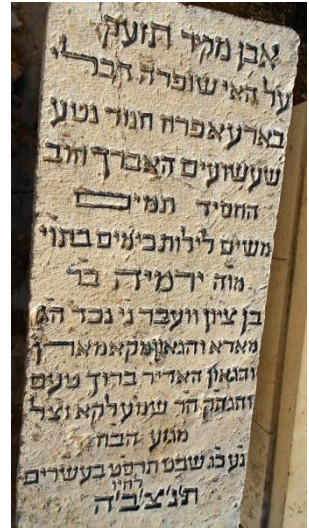 אבן מקיר תזעק
על האי שופרה דבר״י
בארעא פרח חמד נטע
שעשועים האברך חוב
החסיד תמים
משים לילות כימים בתוי
מוה ירמיה בר
בן ציון וועבר ני נכד הג
מארא והגאון מקאמארין
והגאון האדיר ברוך טעם
והגהק הר שמעלקא זצל
מגזע הבח
נע כג שבט תרסט בעשרים
לחיו
ת׳נ׳צ׳ב׳ה